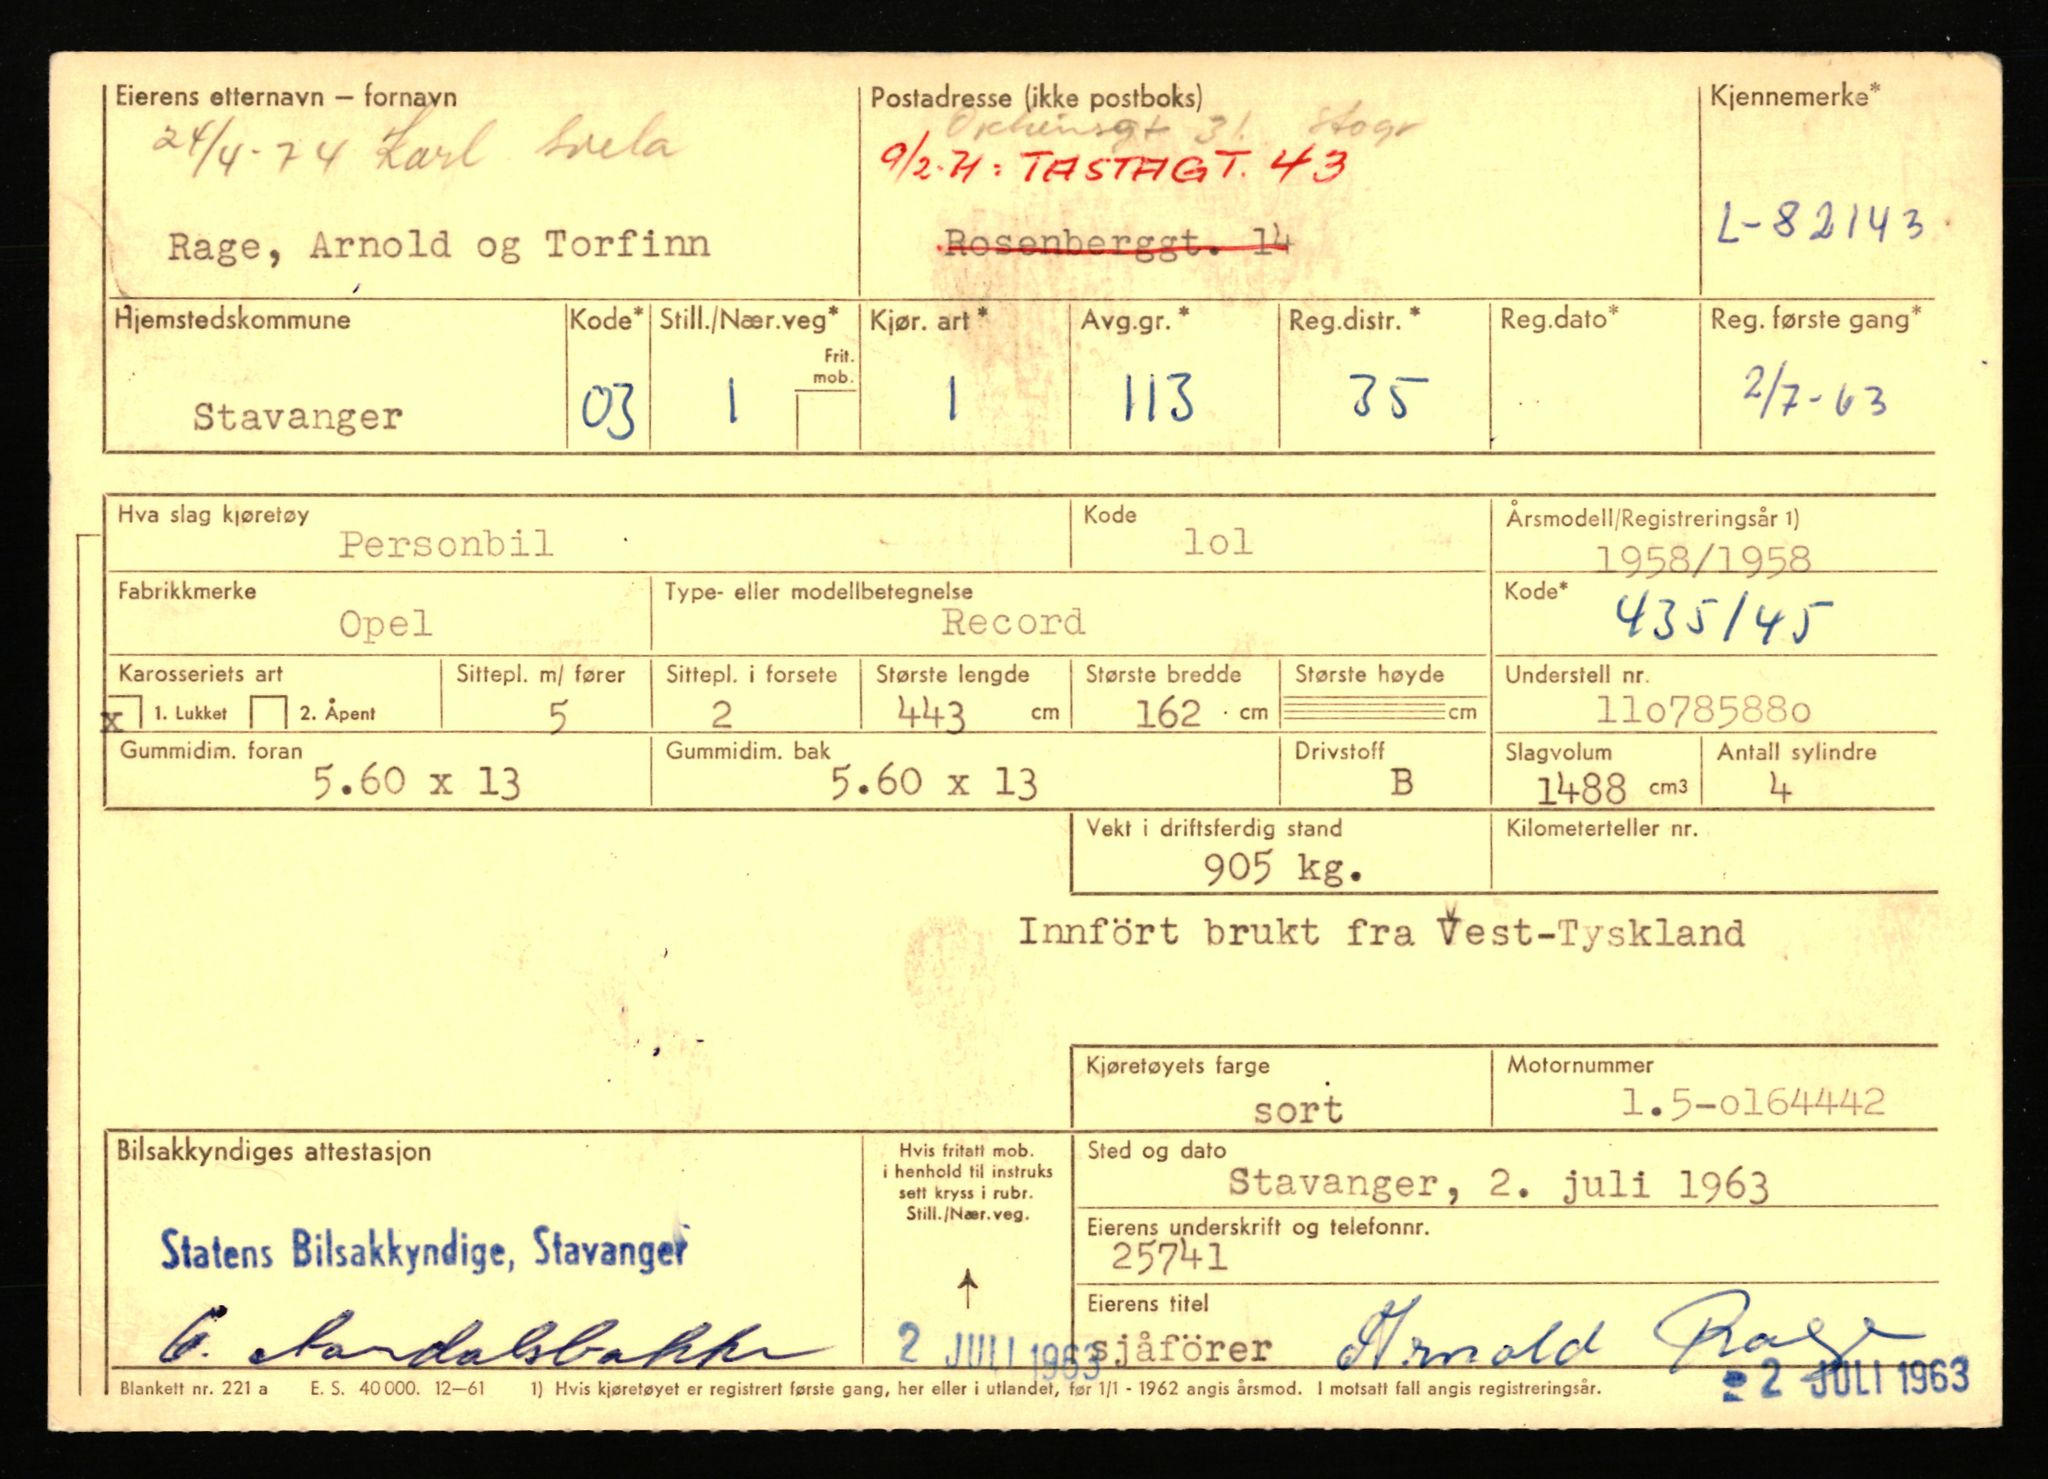 Eierens etternavn – fornavn
24/4-74 Karl Svela
Rage, Arnold og Torfinn
Postadresse (ikke postboks)
31. Stagr
9/2-71: TASTAGT. 43
Rosenberggt. 14
Kjennemerke*
L-82143
Hjemstedskommune
Stavanger
Kode*
03
Still./Nær.veg*
1
Frit.
mob.
Kjør. art*
1
Avg.gr.*
113
Reg.distr.*
35
Reg.dato*
Reg. første gang*
2/7-63
Hva slag kjøretøy
Personbil
Kode
lol
Årsmodell/Registreringsår 1)
1958/1958
Fabrikkmerke
Opel
Type- eller modellbetegnelse
Record
Kode*
435/45
Karosseriets art
x 1. Lukket 2. Åpent
Sittepl. m/ fører
5
Sittepl. i forsete
2
Største lengde
443 cm
Største bredde
162 cm
Største høyde
cm
Understell nr.
llo78588o
Gummidim. foran
5.60 x 13
Gummidim. bak
5.60 x 13
Drivstoff
B
Slagvolum
1488 cm3
Antall sylindre
4
Vekt i driftsferdig stand
905 kg.
Kilometerteller nr.
Innfört brukt fra Vest-Tyskland
Kjøretøyets farge
sort
Motornummer
1.5-o164442
Bilsakkyndiges attestasjon
Statens Bilsakkyndige, Stavanger
Hvis fritatt mob.
i henhold til instruks
sett kryss i rubr.
Still./Nær.veg.
2 JULI 1963
Sted og dato
Stavanger, 2. juli 1963
Eierens underskrift og telefonnr.
25741
Eierens titel
sjåförer
Arnold Rage
2 JULI 1963
Blankett nr. 221 a E. S. 40 000. 12–61 1) Hvis kjøretøyet er registrert første gang, her eller i utlandet, før 1/1 - 1962 angis årsmod. I motsatt fall angis registreringsår.